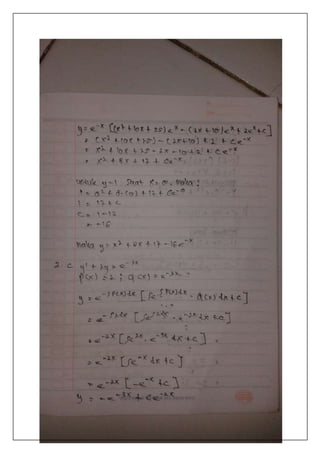 y = e^-x [(x² + 10x + 25) e^x - (2x + 10) e^x + 2e^x + c]
= (x² + 10x + 25) - (2x + 10) + 2 + Ce^-x
= x² + 10x + 25 - 2x - 10 + 2 + Ce^-x
= x² + 8x + 17 + Ce^-x
untuk y = 1 Saat x = 0, maka :
1 = 0² + 8.(0) + 17 + Ce^-0
1 = 17 + C
C = 1 - 17
= -16
maka y = x² + 8x + 17 - 16e^-x
2 c. y' + 2y = e^-3x
P(x) = 2 ; Q(x) = e^-3x
y = e^-∫P(x)dx [∫e^∫P(x)dx . Q(x) dx + c]
= e^-∫2dx [∫e^∫2dx . e^-3x dx + c]
= e^-2x [∫e^2x . e^-3x dx + c]
= e^-2x [∫e^-x dx + c]
= e^-2x [-e^-x + c]
y = -e^-3x + ce^-2x